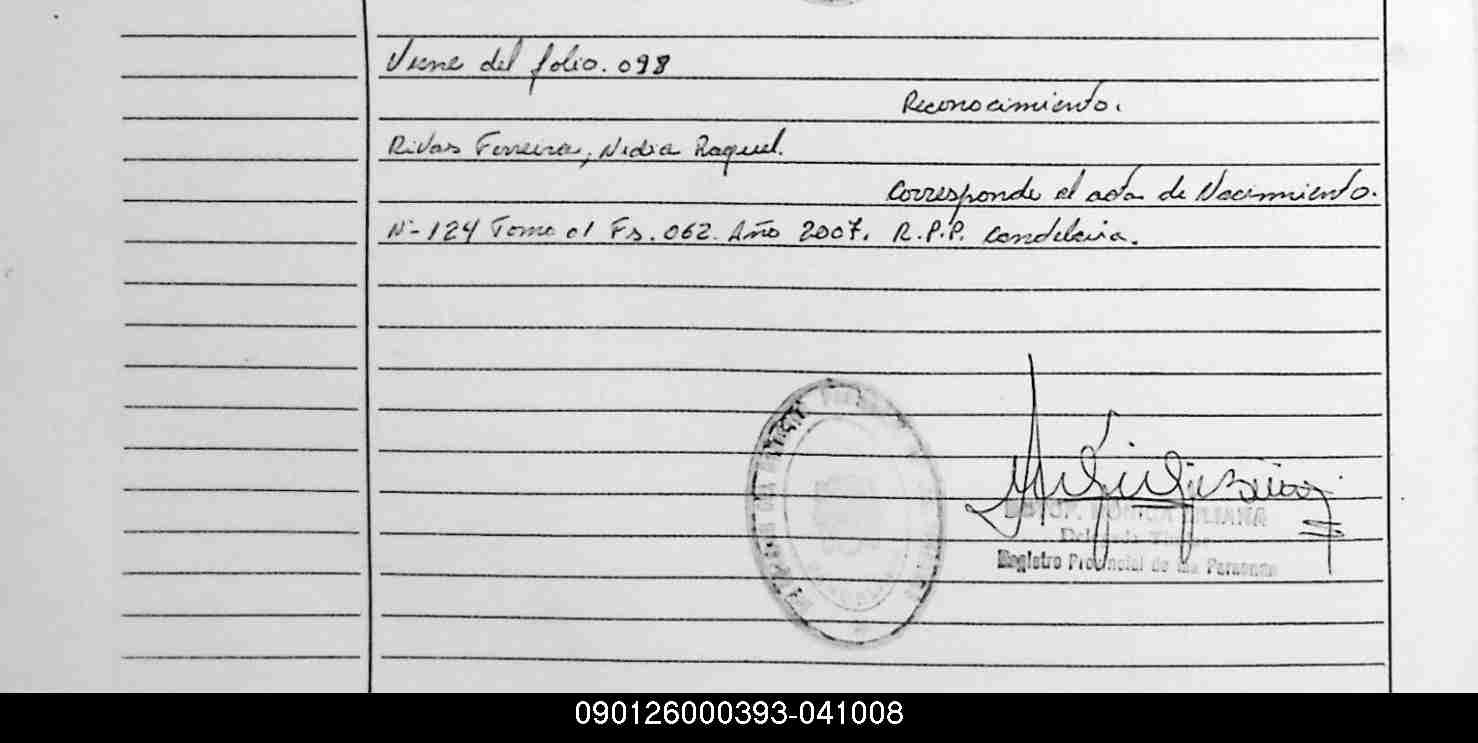 Viene del folio. 098
Reconocimiento.
Rivas Ferreira, Nidia Raquel.
Corresponde el acta de Nacimiento.
Nº 124 Tomo 01 Fs. 062. Año 2007. R.P.P. Candelaria.
Registro Provincial de las Personas
090126000393-041008